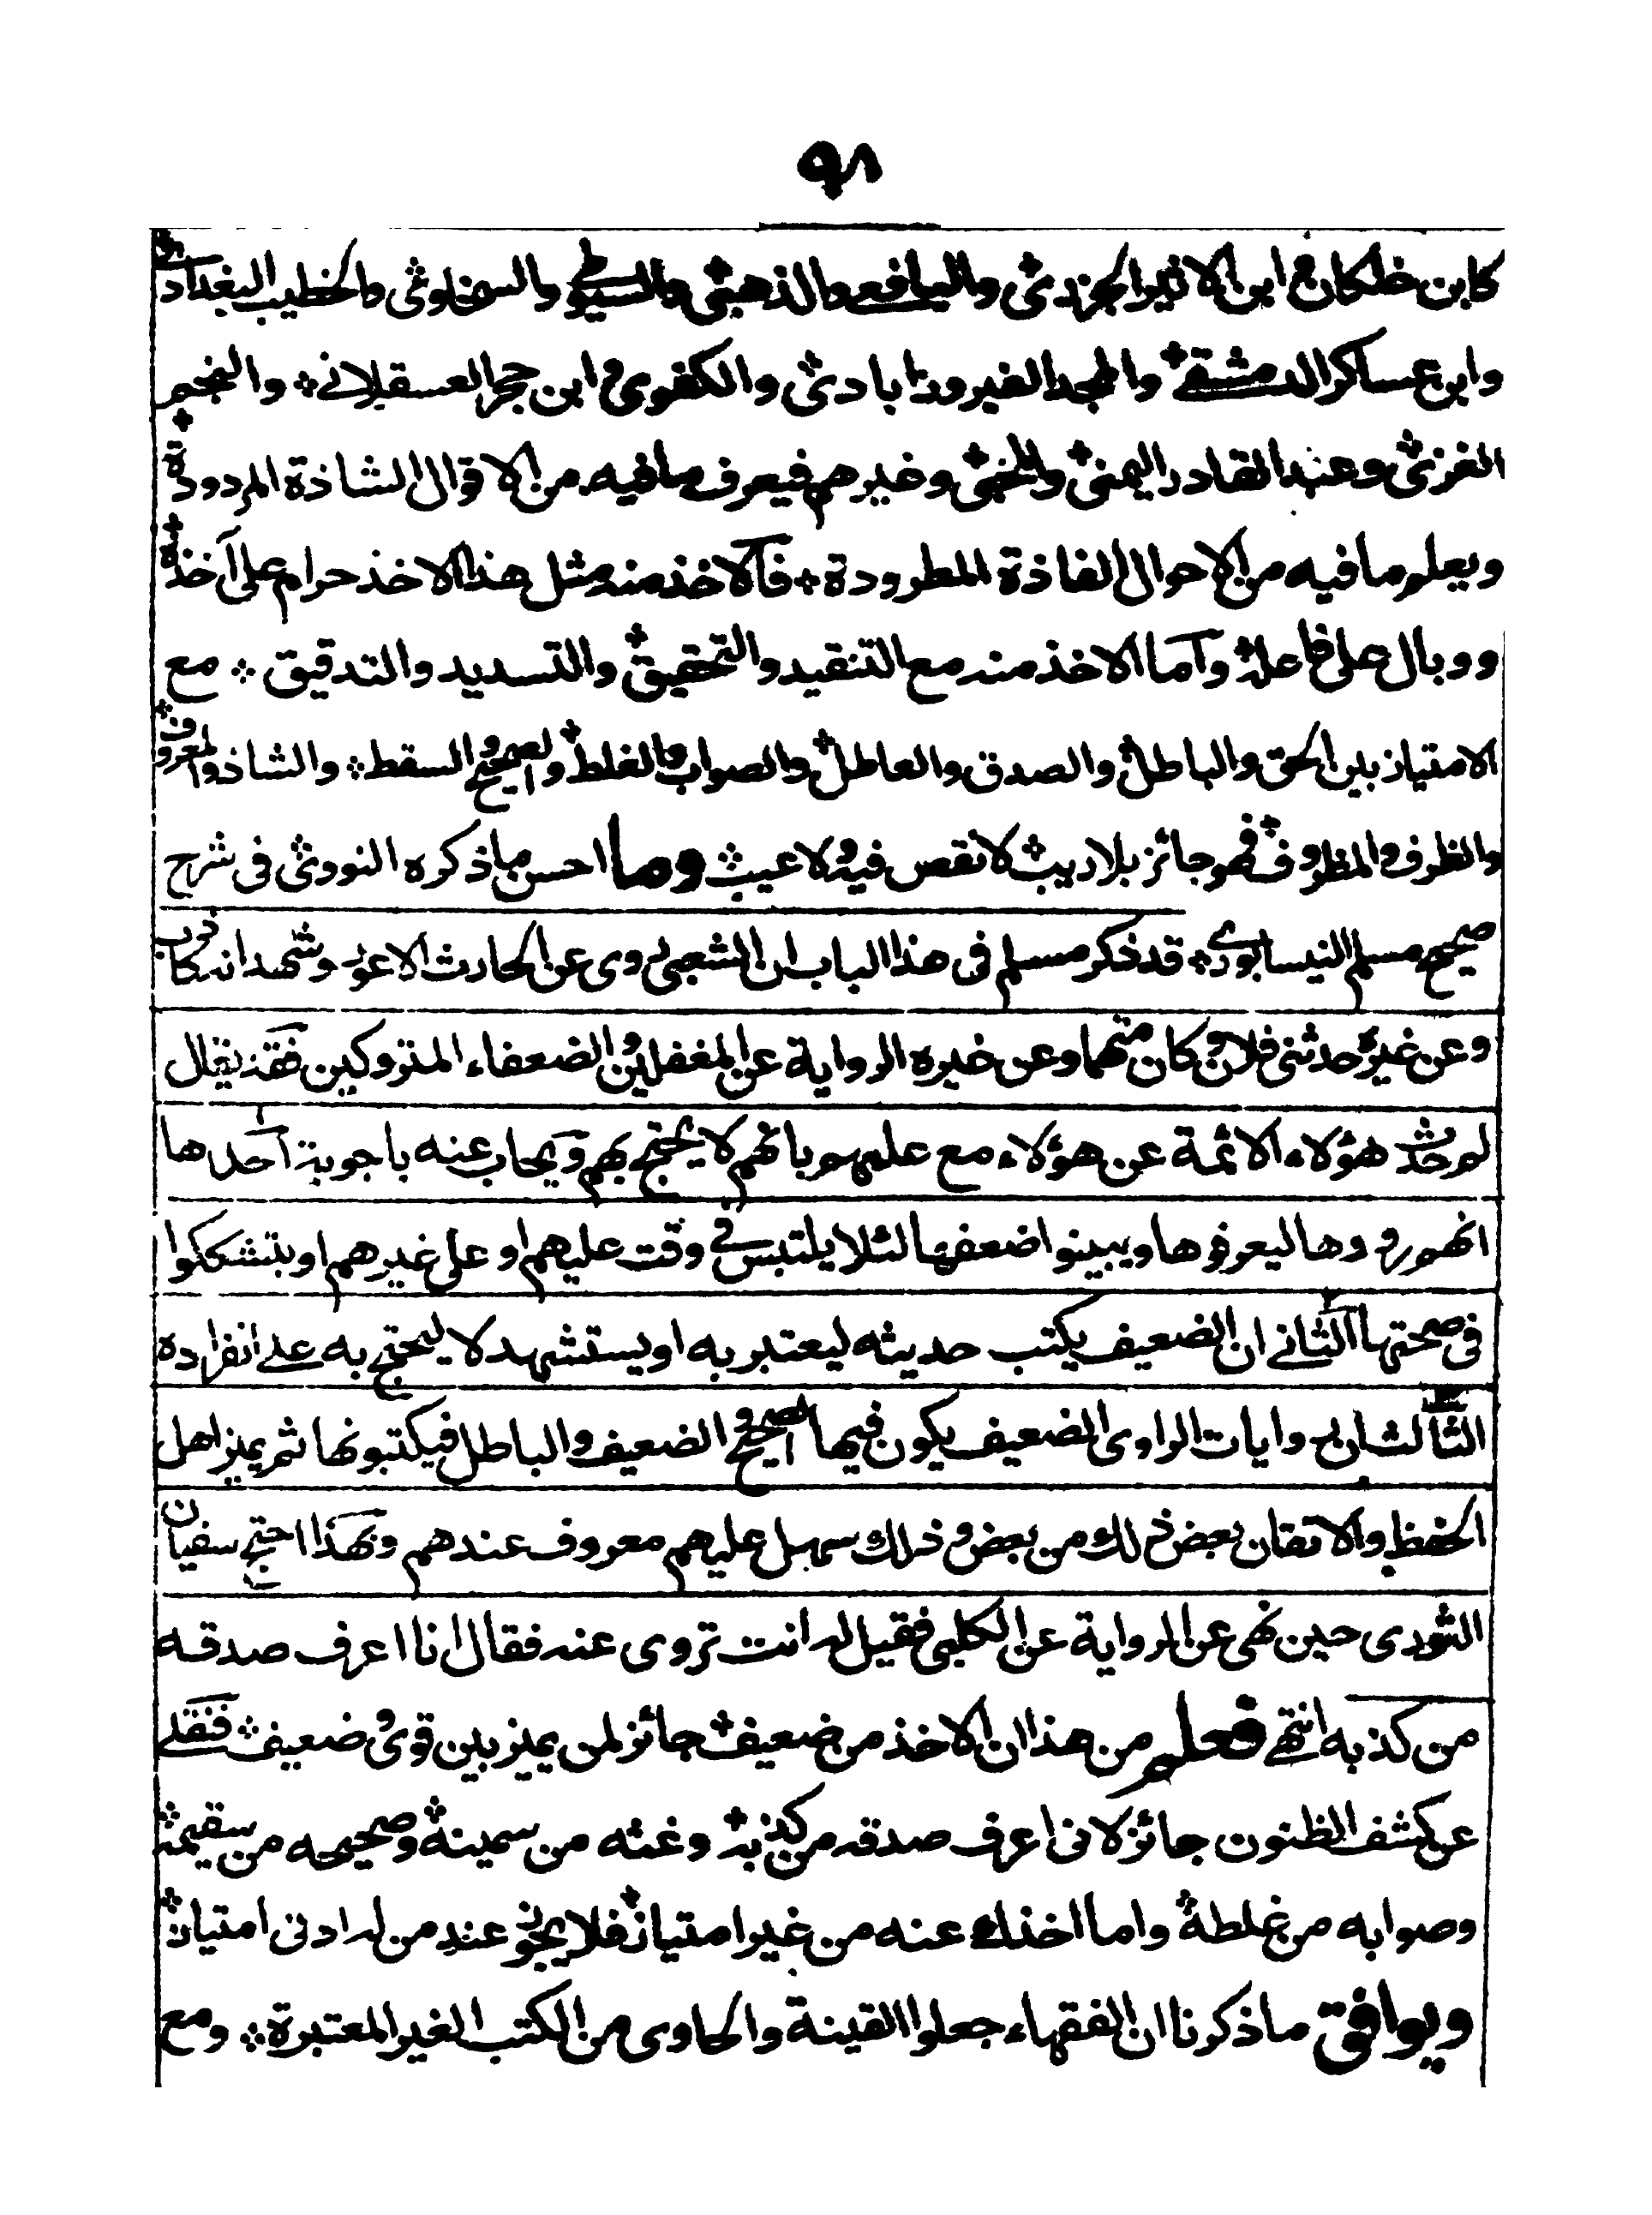 ٩٨
كابن خلكان وابن الاثير الجزري والیافعے والذهبي والسیوطے والسخاوي والخطیب البغدادي
وابن عساكر الدمشقے والمجد الفيروزابادي والكفوي وابن حجر العسقلانے والنجم
الغزي وعبد القادر اليمني والمحبي وغيرهم فيعرف ما فيه من الاقوال الشاذة المردودة
ويعلم ما فيه من الاحوال الفاذة المطرودة فالاخذ منه مثل هذا الاخذ حرام على آخذه
ووبال على فاعله واما الاخذ منه مع التنقيد والتحقيق والتسديد والتدقيق مع
الامتياز بين الحق والباطل والصدق والعاطل والصواب والغلط والصحيح والسقط والشاذ والمعروف
والظرف والمظروف فهو جائز بلا ريب لا نقص فيه ولا عيب وما احسن ما ذكره النووي في شرح
صحيح مسلم النيسابوري قد ذكر مسلم في هذا الباب ان الشعبي روى عن الحارث الاعور وشهد انه كاذب
وعن غيره حدثني فلان وكان متهما وعن غيره الرواية عن المغفلين والضعفاء المتروكين فقد يقال
لم حدث هؤلاء الائمة عن هؤلاء مع علمهم بانهم لا يحتج بهم ويجاب عنه باجوبة احدها
انهم رووها ليعرفوها ويبينوا ضعفها لئلا يلتبس في وقت عليهم او على غيرهم او يتشككوا
في صحتها الثانے ان الضعيف يكتب حديثه ليعتبر به او يستشهد لا ليحتج به علے انفراده
الثالث ان روايات الراوى الضعيف يكون فيها الصحيح والضعيف والباطل فيكتبونها ثم يميز اهل
الحفظ والاتقان بعض ذلك من بعض وذلك سهل عليهم معروف عندهم وبهذا احتج سفيان
الثوري حين نهى عن الرواية عن الكلبي فقيل له انت تروى عنه فقال انا اعرف صدقه
من كذبه انتهى فعلم من هذا ان الاخذ من ضعيف جائز لمن يميز بين قوي وضعيف فنقلے
عن كشف الظنون جائز لانى اعرف صدقه من كذبه وغثه من سمينه وصحيحه من سقيمه
وصوابه من غلطه واما اخذك عنه من غير امتياز فلا يجوز عند من له ادنى امتياز
ويوافق ما ذكرنا ان الفقهاء جعلوا القينة والحاوى من الكتب الغير المعتبرة ومع